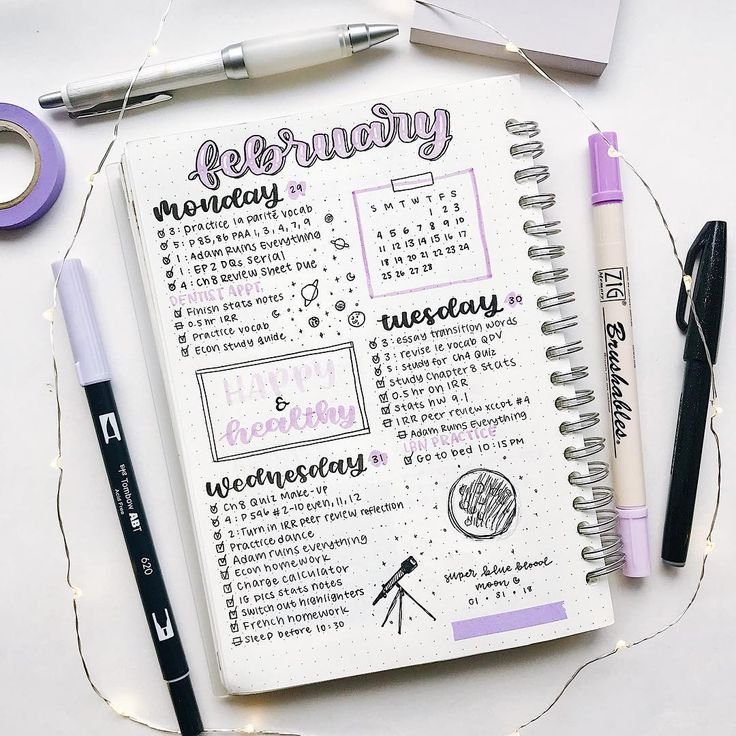 february
monday 29
3: practice ia parité vocab
5: P 85, 86 PAA 1, 3, 4, 7, 9
1: Adam Ruins Everything
1: EP 2 DQs Serial
4: Ch 8 Review Sheet Due
DENTIST APPT.
Finish stats notes
0.5 hr IRR
Practice vocab
Econ study guide
S M T W T F S
1 2 3
4 5 6 7 8 9 10
11 12 13 14 15 16 17
18 19 20 21 22 23 24
25 26 27 28
tuesday 30
3: essay transition words
3: revise ie vocab QPV
5: study for Ch4 Quiz
Study Chapter 8 stats
0.5 hr on IRR
Stats HW 9.1
IRR peer review xccot #4
Adam Ruins Everything
IAN PRACTICE
Go to bed 10:15 PM
HAPPY
&
healthy
wednesday 31
Ch 8 Quiz Make-up
4: P 546 #2-10 even, 11, 12
2: Turn in IRR peer review reflection
Practice dance
Adam ruins everything
Econ homework
Charge calculator
IG pics stats notes
Switch out highlighters
French homework
Sleep before 10:30
super blue blood
moon
01 . 31 . 18
Tombow ABT
Acid Free
620
ZIG
MEMORY SYSTEM
Brushables